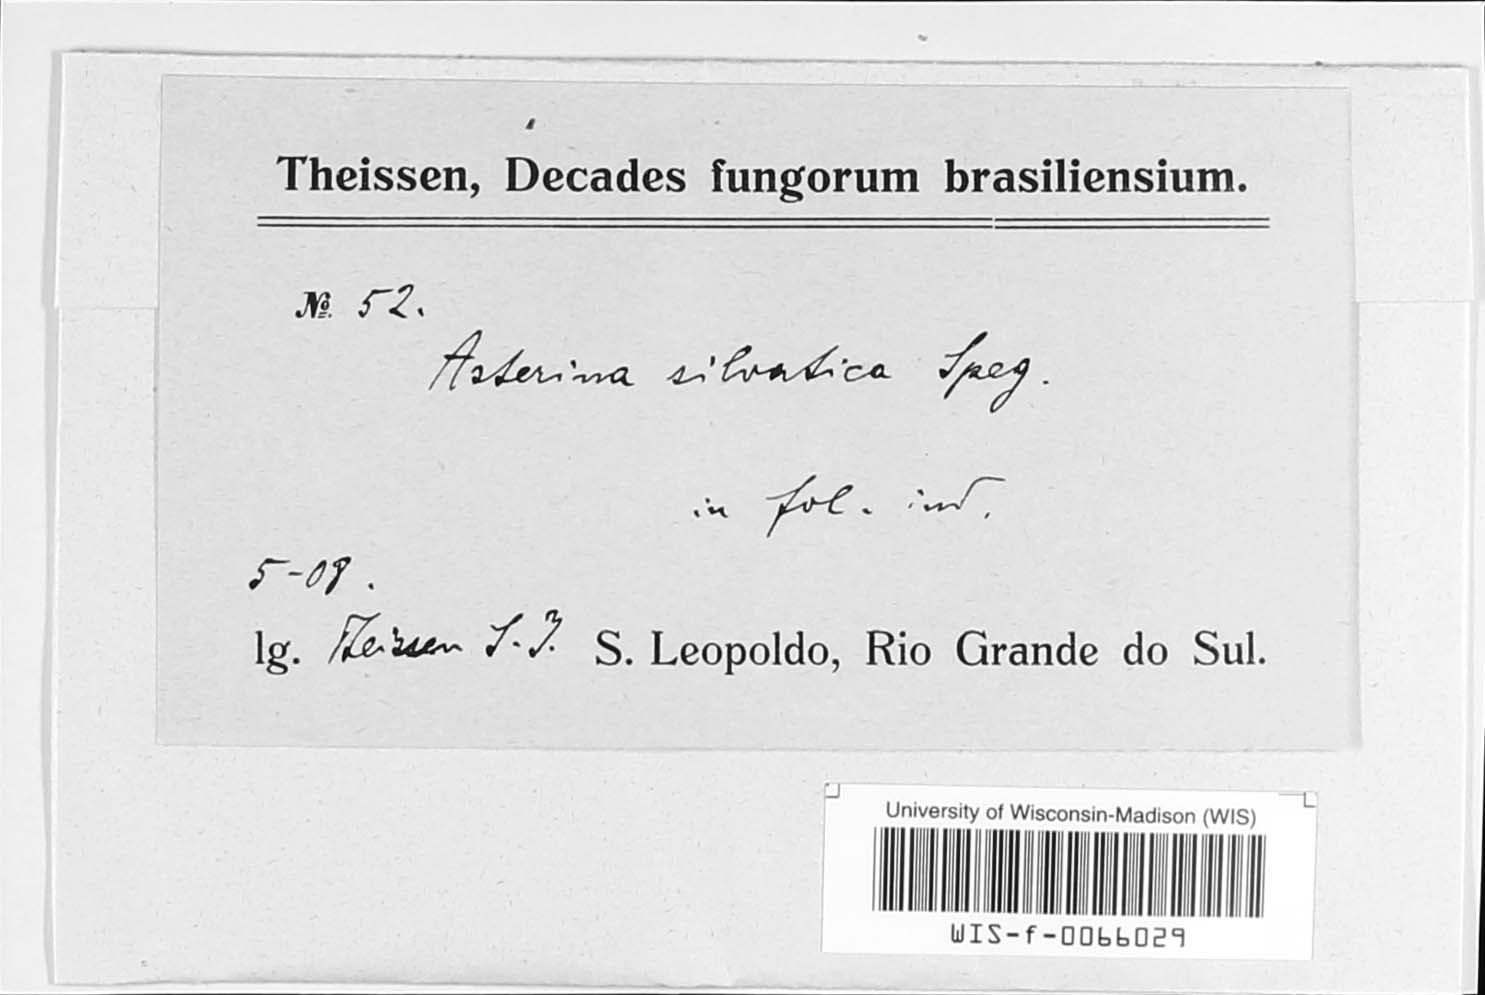 Theissen, Decades fungorum brasiliensium.
№ 52.
Asterina silvatica Speg.
in fol. ind.
5-08.
lg. Theissen S.J. S. Leopoldo, Rio Grande do Sul.
University of Wisconsin-Madison (WIS)
WIS-f-0066029